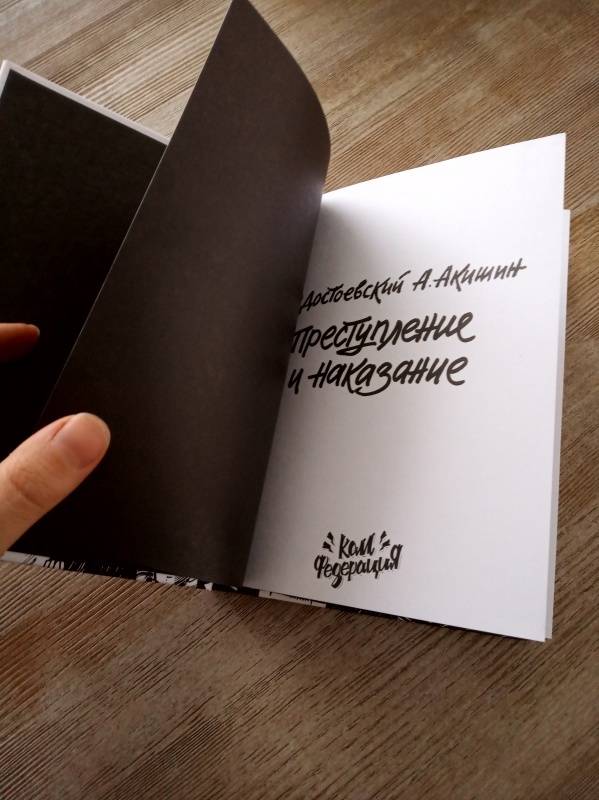 Достоевский А. Акишин
Преступление
и наказание
Ком
Федерация